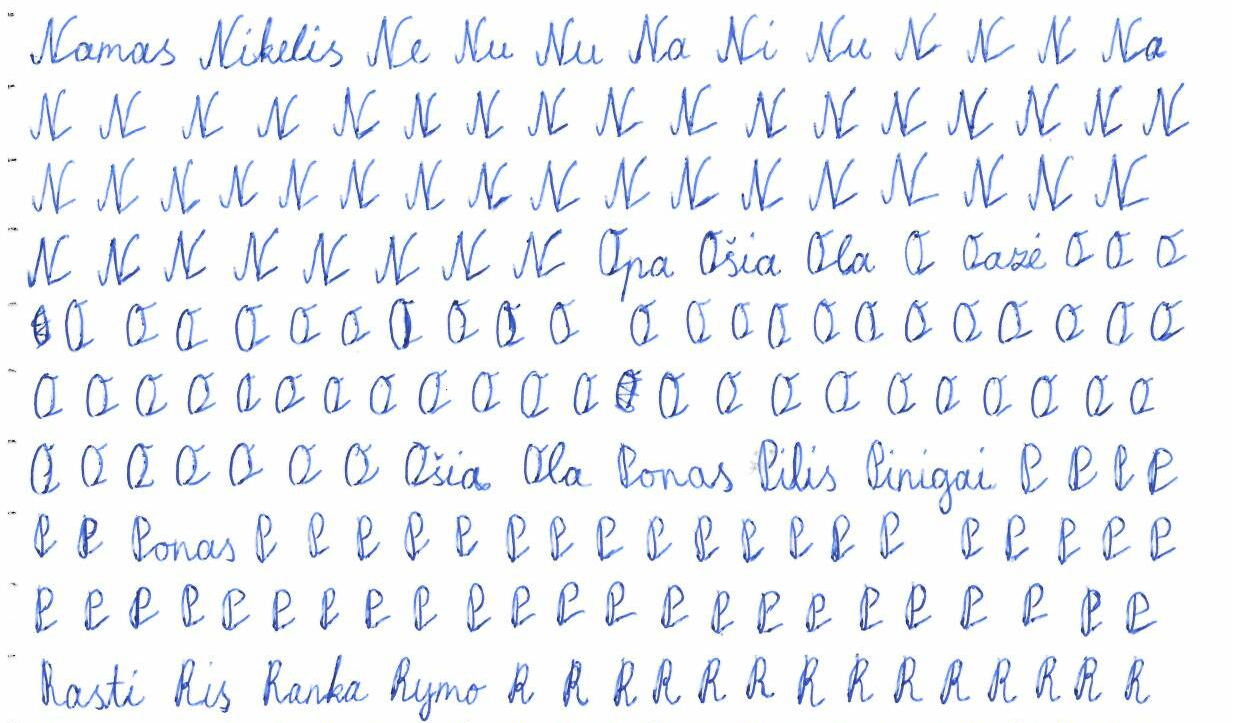 Namas Nikelis Ne Nu Nu Na Ni Nu N N N Na
N N N N N N N N N N N N N N N N N
N N N N N N N N N N N N N N N N N
N N N N N N N N Opa Ošia Ola O Oazė O O O
O O O O O O O O O O O O O O O O O O O O O O
O O O O O O O O O O O O O O O O O O O O O O
O O O O O O O Ošia Ola Ponas Pilis Pinigai P P P P
P P Ponas P P P P P P P P P P P P P P P P P P P
P P P P P P P P P P P P P P P P P P P P P P P
Rasti Ris Ranka Rymo R R R R R R R R R R R R R R